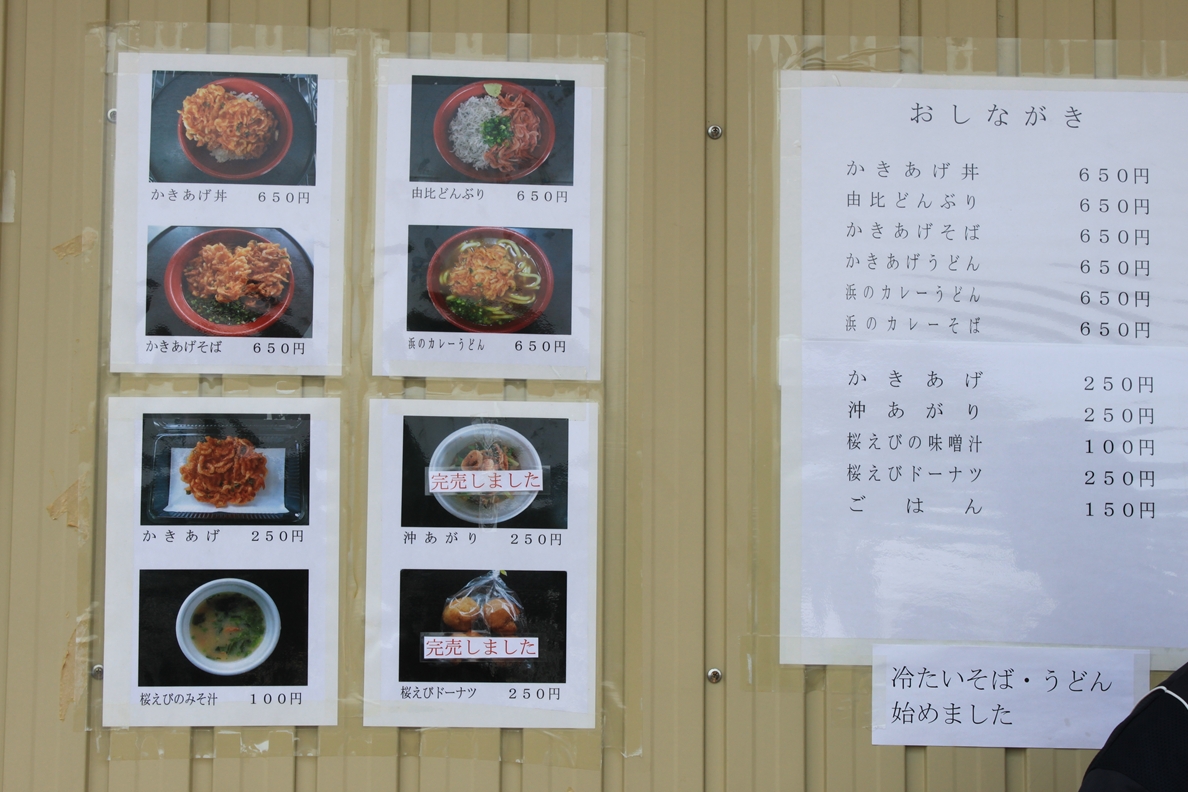 かきあげ丼 650円
かきあげそば 650円
由比どんぶり 650円
浜のカレーうどん 650円
かきあげ 250円
桜えびのみそ汁 100円
完売しました
沖あがり 250円
完売しました
桜えびドーナツ 250円
おしながき
かきあげ丼 650円
由比どんぶり 650円
かきあげそば 650円
かきあげうどん 650円
浜のカレーうどん 650円
浜のカレーそば 650円
かきあげ 250円
沖あがり 250円
桜えびの味噌汁 100円
桜えびドーナツ 250円
ごはん 150円
冷たいそば・うどん
始めました